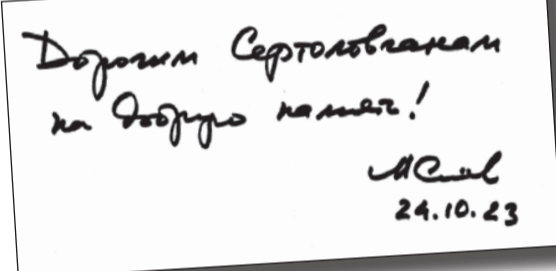 Дорогим Сертоловчанам
на добрую память!
24.10.23